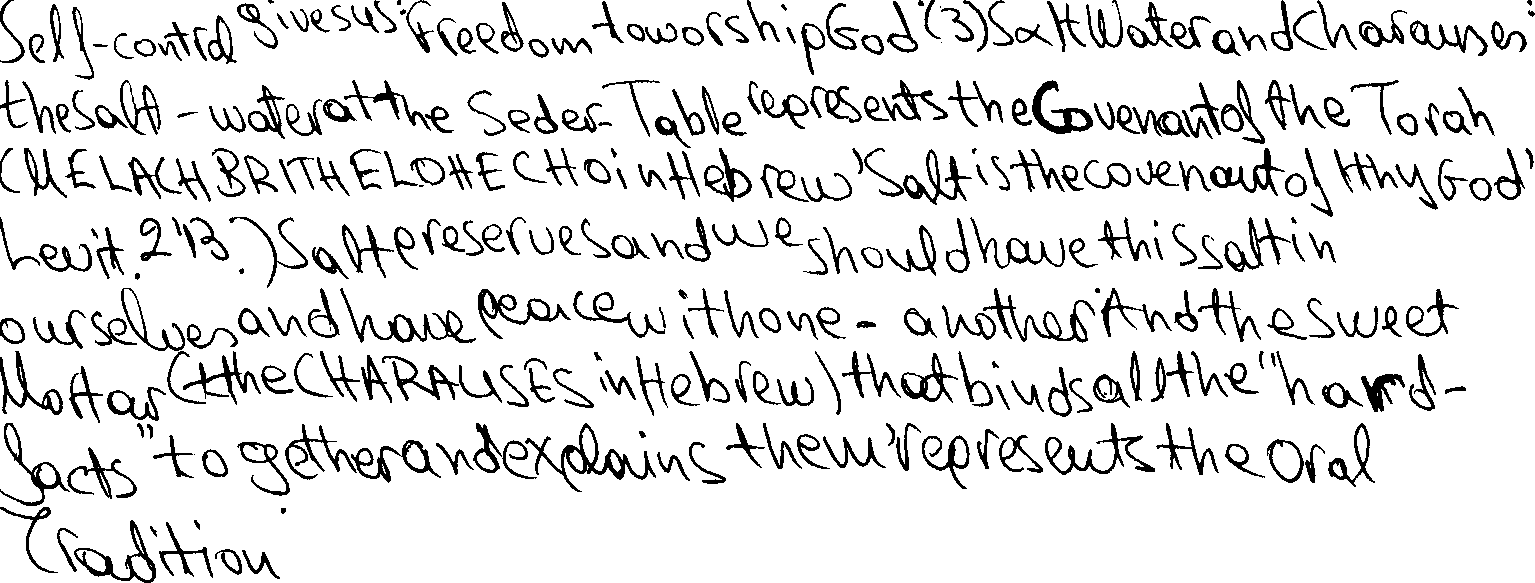 Self-control gives us: Freedom to worship God' (3) Salt Water and Charauses:
the Salt - water at the Seder-Table represents the Covenant of the Torah
(MELACH BRITH ELOHECHO in Hebrew 'Salt is the covenant of thy God'
Levit. 2'13.) Salt preserves and we should have this salt in
ourselves and have peace with one - another' And the sweet
Mortar (the CHARAUSES in Hebrew) that binds all the "hard-
facts" together and explains them' represents the Oral
Tradition.